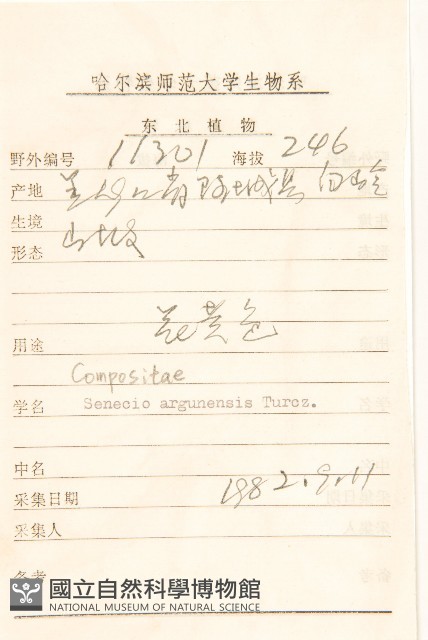 哈尔滨师范大学生物系
东北植物
野外编号 11301 海拔 246
产地
生境 山坡
形态
花黄色
用途
Compositae
学名 Senecio argunensis Turcz.
中名
采集日期 1982.9.11
采集人
备考
國立自然科學博物館
NATIONAL MUSEUM OF NATURAL SCIENCE